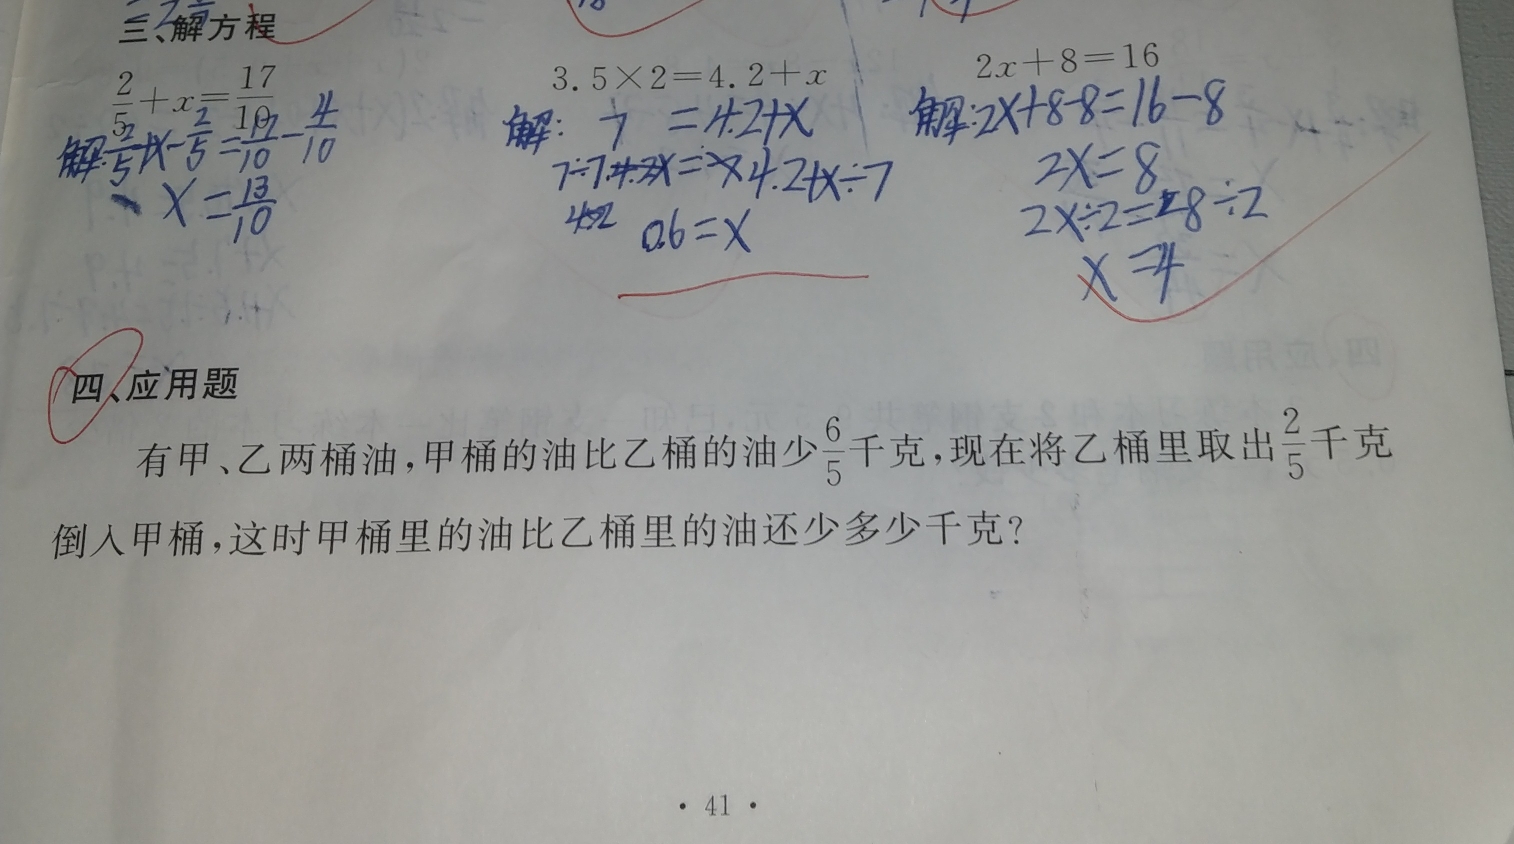 三、解方程
2/5+x=17/10 3.5×2=4.2+x 2x+8=16
解:2/5+x-2/5=17/10-4/10 解: 7 =4.2+x 解:2x+8-8=16-8
x=13/10 7÷7=4.2+x÷7 2x=8
0.6=x 2x÷2=8÷2
x=4
四、应用题
有甲、乙两桶油,甲桶的油比乙桶的油少6/5千克,现在将乙桶里取出2/5千克
倒入甲桶,这时甲桶里的油比乙桶里的油还少多少千克?
· 41 ·